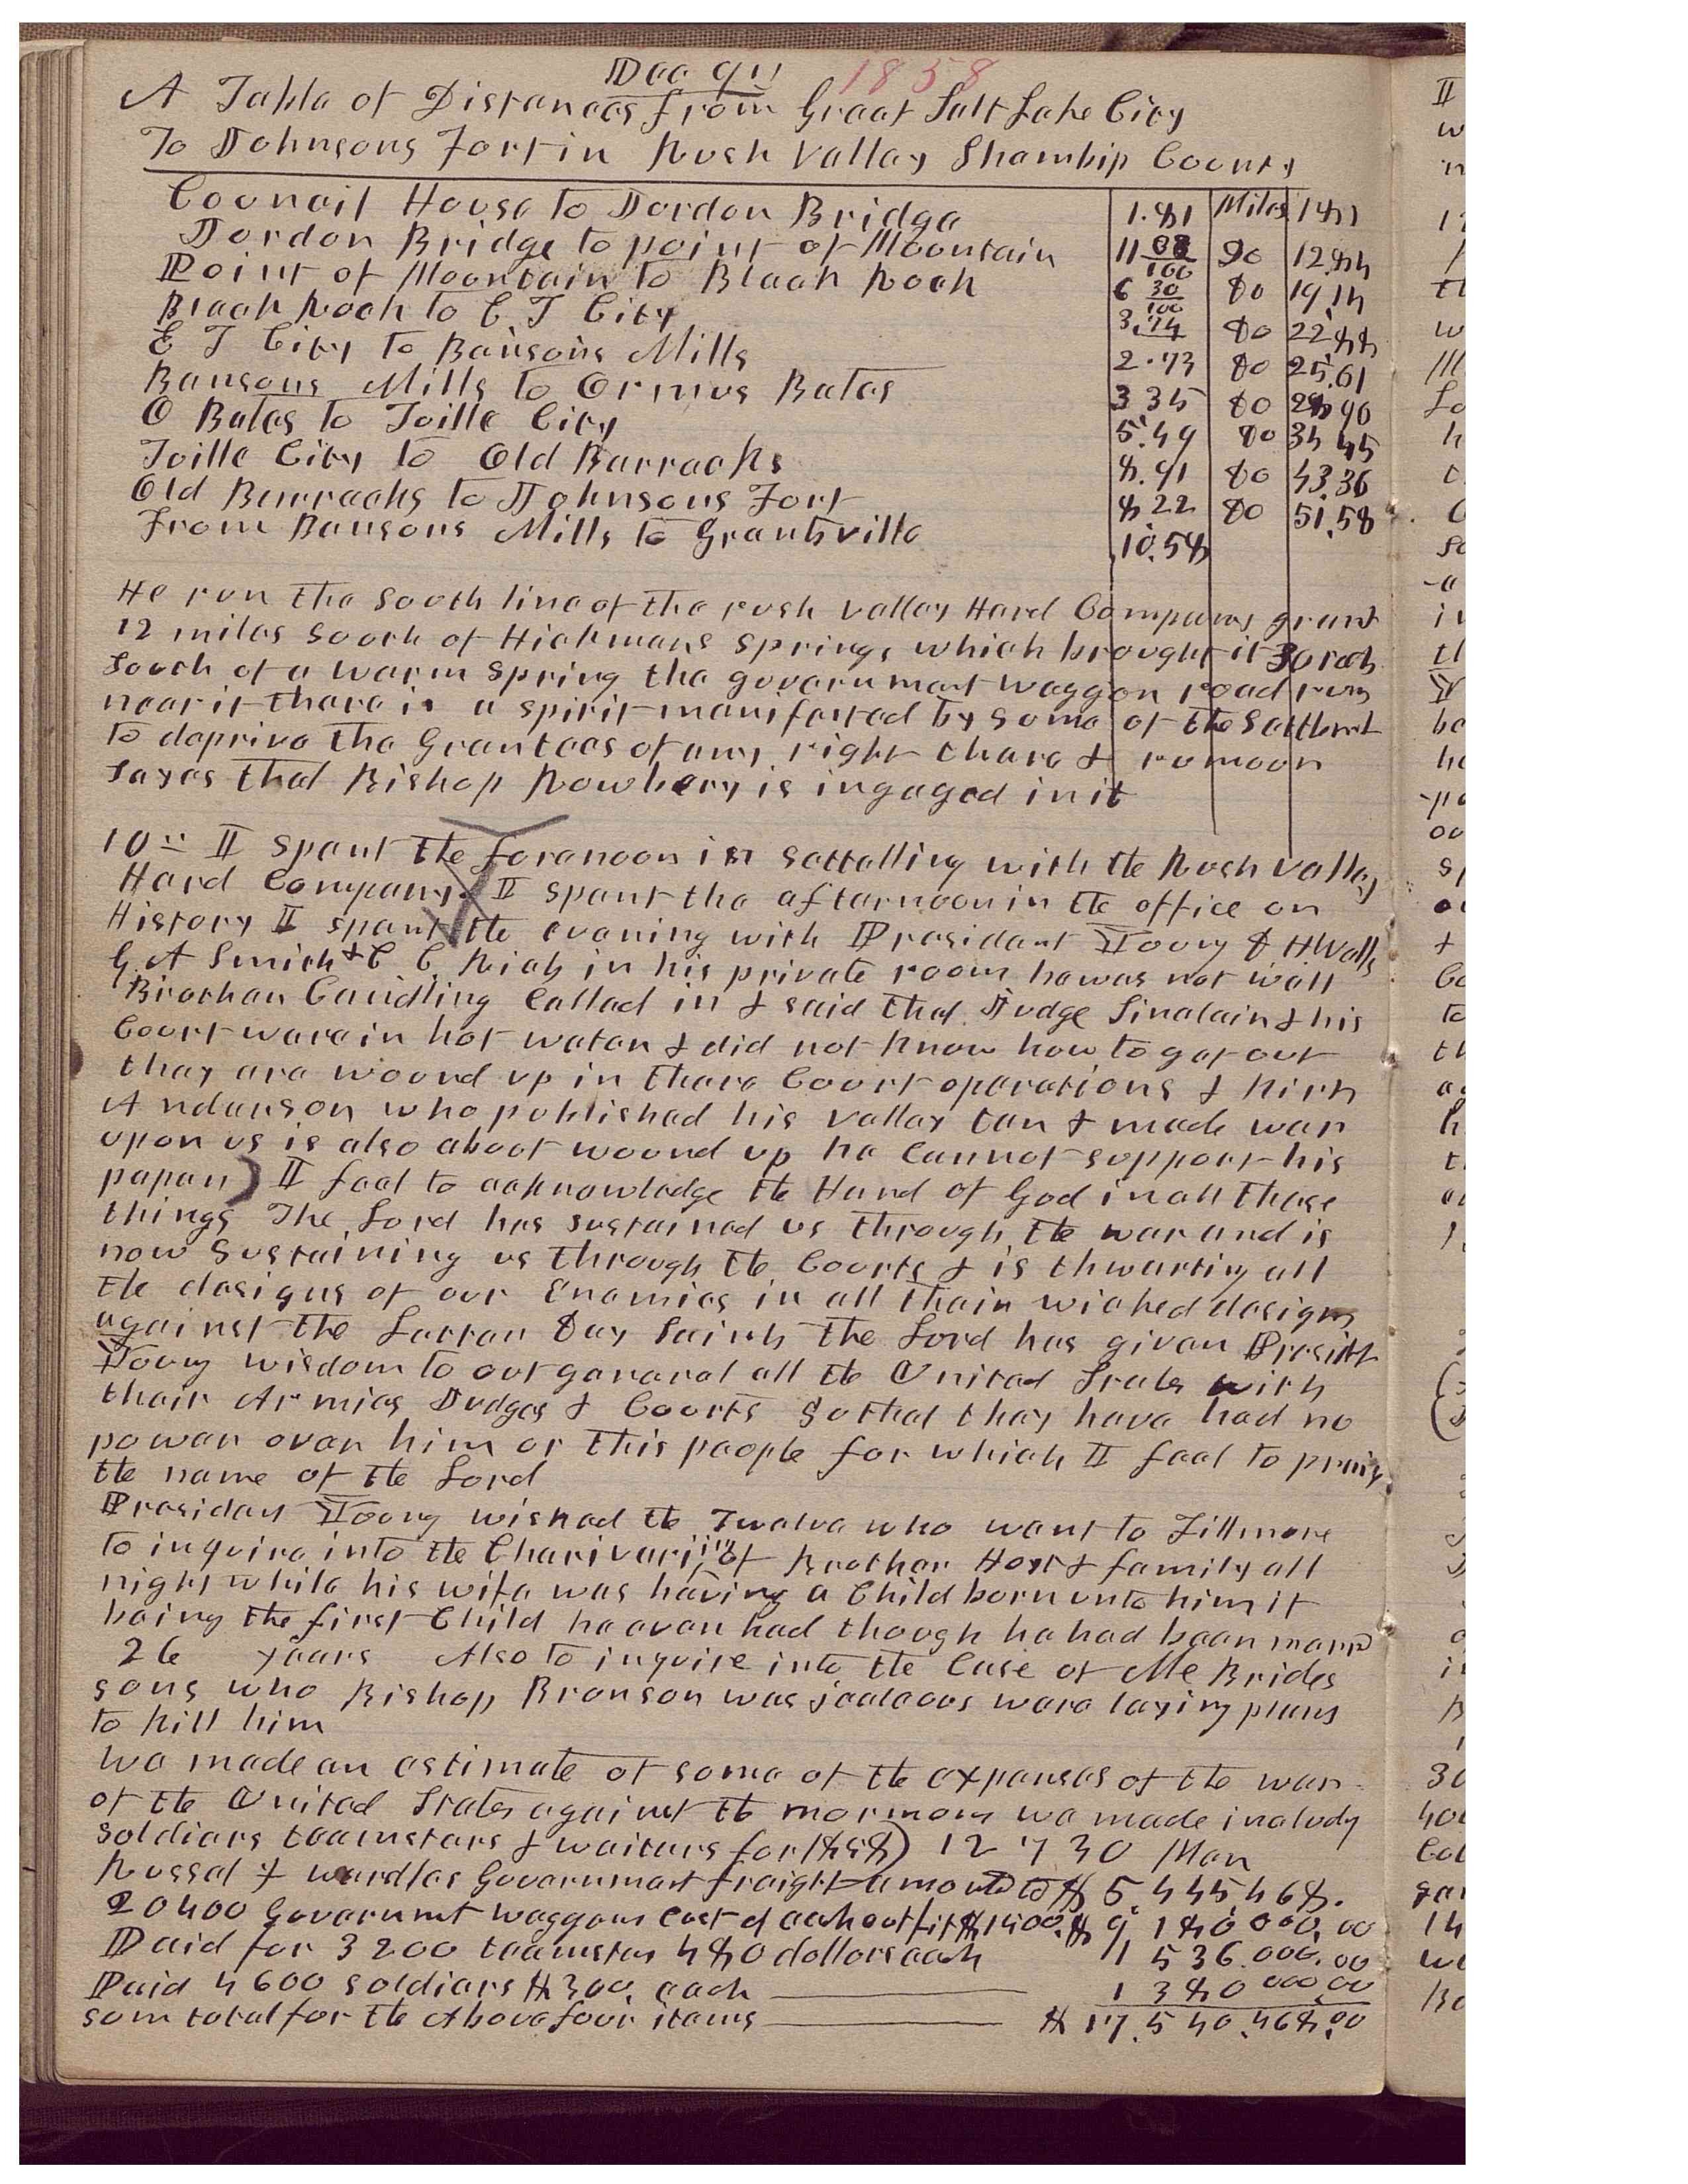 Dec 9th 1858
A Table of Distances from Great Salt Lake City
To Johnsons Fort in Rush Valley Shambip County
Council House to Jordon Bridge 1.81 Miles 1 81
Jordon Bridge to point of Mountain 11 03/100 Do 12.84
Point of Mountain to Black Rock 6 30/100 Do 19 14
Black Rock to E T City 3.74 Do 22.88
E T City to Bensons Mills 2.73 Do 25.61
Bensons Mills to Ormus Bates 3 35 Do 28 96
O Bates to Toille City 5.49 Do 34 45
Toille City to Old Barracks 8.91 Do 43.36
Old Barracks to Johnsons Fort 8 22 Do 51.58
From Bensons Mills to Grantsville 10.58
He run the South line of the rush valley Herd Companys grant
12 miles South of Hickmans Springs which brought it 30 rods
South of a warm spring the government waggon road runs
near it there is a spirit manifested by some of the Settlemet
to deprive the Grantees of any right there & rumoor
Sayes that Bishop Rowbery is ingaged in it
10th I spent the forenoon in settelling with the Rush valley
Herd Company. I spent the afternoon in the office on
History I spent the evening with President Young D H Wells
G. A Smith & C C Rich in his private room he was not well
Brother Candling Called in & said that Judge Sinclair & his
Court were in hot water & did not know how to get out
they are woond up in there Court operations & Kirk
Anderson who published his valley tan & made war
upon us is also about woond up he Cannot support his
paper) I feel to acknowledge the Hand of God in all these
things The Lord has sustained us through the war and is
now Sustaining us through the Courts & is thwarting all
the designs of our Enemies in all their wicked designs
against the Latter Day Saints the Lord has given Presidet
Young wisdom to out general all the United States with
their Armies Judges & Courts so that they have had no
power over him or this people for which I feel to praise
the name of the Lord
Presiden Young wished the Twelve who went to Fillmore
to inquire into the Charivariing of Brother Hoyt & family all
night while his wife was having a Child born unto him it
being the first Child he ever had though he had been marrd
26 years Also to inquire into the Case of Mc Brides
sons who Bishop Bronson was jealous were laying plans
to kill him
We made an estimate of some of the expenses of the war
of the United States against the mormons we made includg
soldiers teamsters & waiters for 1858) 12 730 Men
Russel & wardles Government freight amounted to $ 5.445 468.
20400 Governmt waggons cost d each outfit $1900. $ 9 180 000.00
Paid for 3200 teamster 480 dollors each 1 536.000.00
Paid 4600 soldiers $300. each 1 380 000.00
som total for the Above four items $ 17.540.468.00